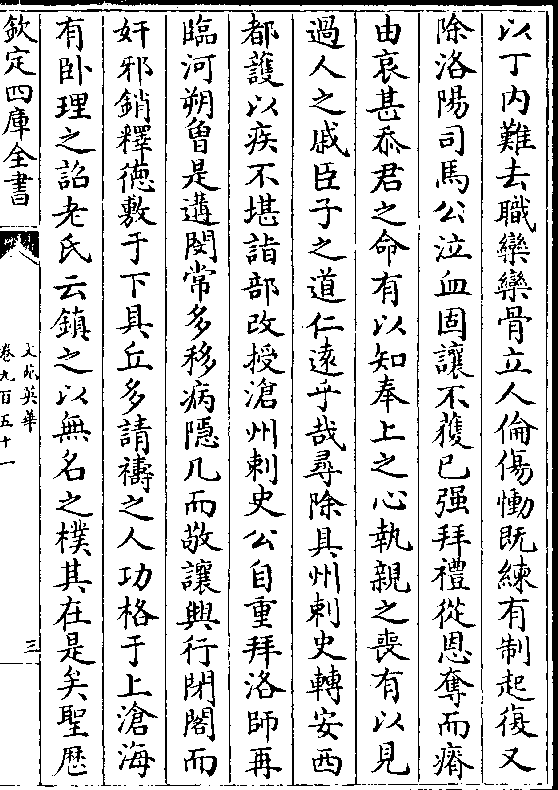 以丁内難去職欒欒骨立人倫傷慟既練有制起復又
除洛陽司馬公泣血固讓不獲已强拜禮從恩奪而瘠
由哀甚忝君之命有以知奉上之心執親之喪有以見
過人之戚臣子之道仁遠乎哉尋除具州刺史轉安西
都護以疾不堪詣部改授滄州刺史公自重拜洛師再
臨河朔曾是遘閔常多移病隱几而敬讓興行閉閣而
奸邪銷釋徳敷于下具丘多請禱之人功格于上滄海
有卧理之詔老氏云鎮之以無名之樸其在是矣聖厯
欽定四庫全書
文苑英華
卷九百五十一
三